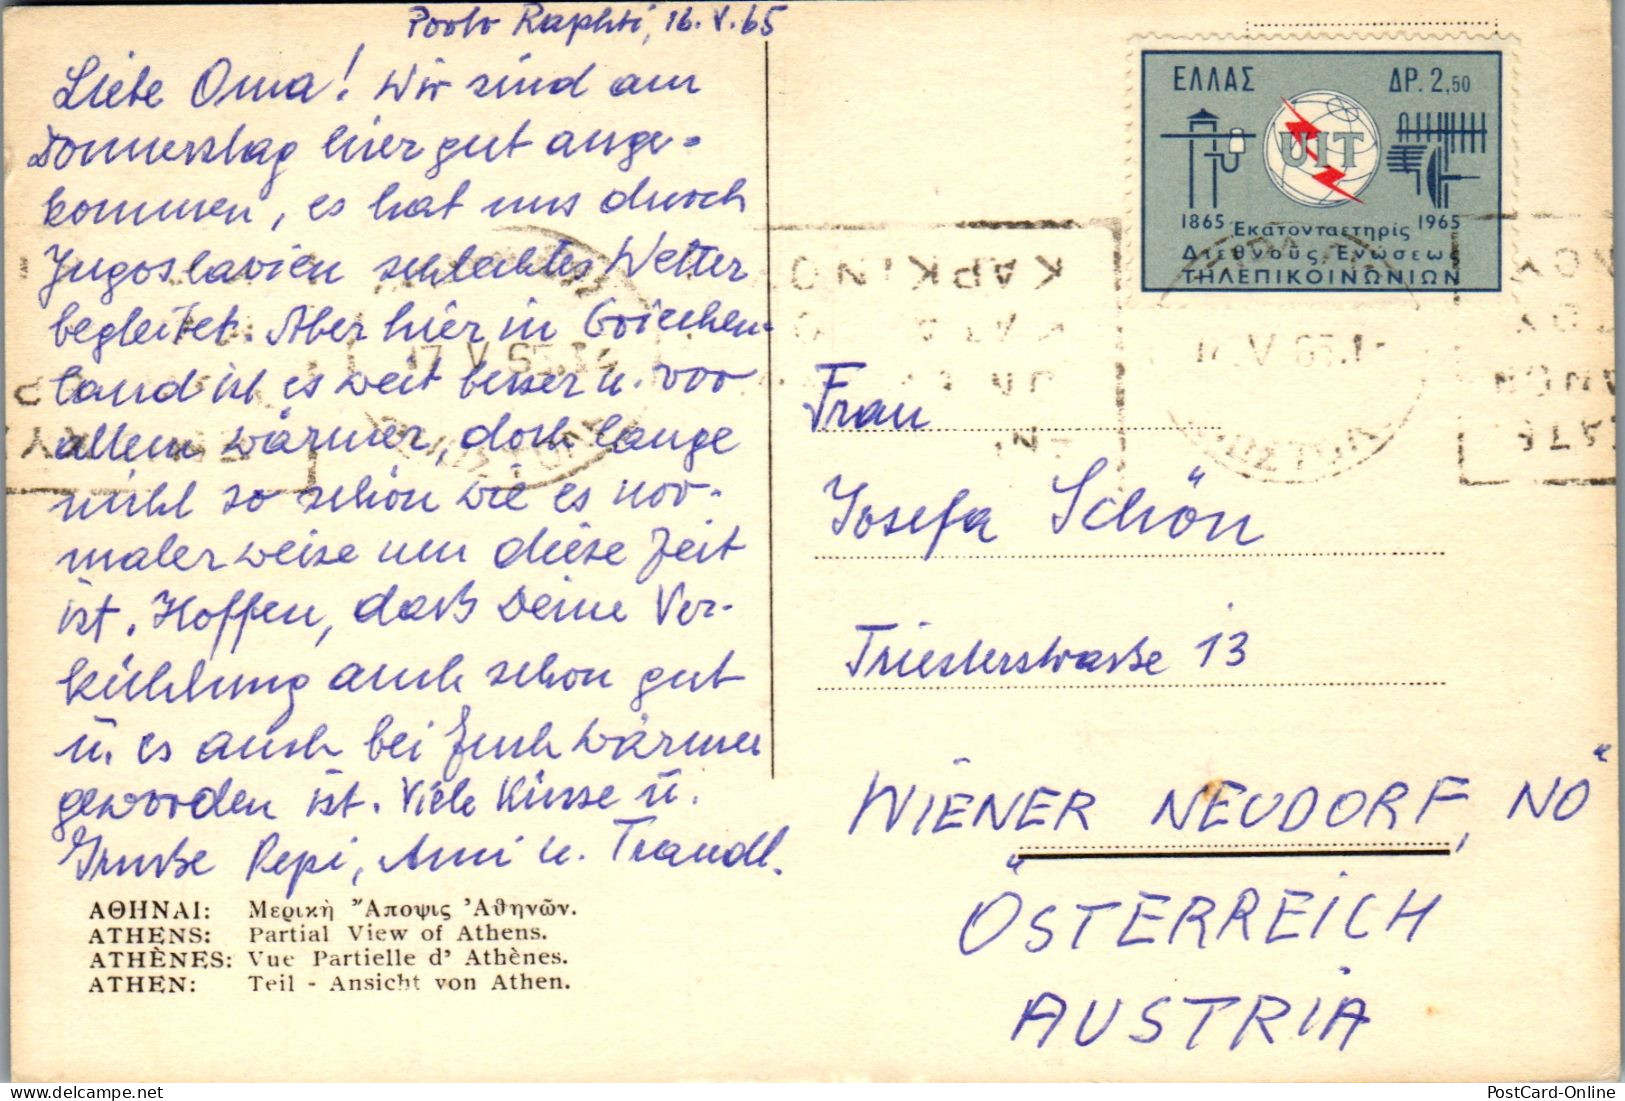 Porto Raphti, 16.V.65
Liebe Oma! Wir sind am
Donnerstag hier gut ange-
kommen, es hat uns durch
Jugoslavien schlechtes Wetter
begleitet. Aber hier in Griechen-
land ist es weit besser u. vor
allem wärmer, doch lange
nicht so schön wie es nor-
malerweise um diese Zeit
ist. Hoffen, daß Deine Ver-
kühlung auch schon gut
u. es auch bei Euch wärmer
geworden ist. Viele Küsse u.
Grüße Pepi, Anni u. Traudl.
ΑΘΗΝΑΙ: Μερικὴ Ἄποψις Ἀθηνῶν.
ATHENS: Partial View of Athens.
ATHÈNES: Vue Partielle d' Athènes.
ATHEN: Teil - Ansicht von Athen.
ΕΛΛΑΣ ΔΡ. 2,50
UIT
1865 Εκατονταετηρὶς 1965
Διεθνοῦς Ἑνώσεως
ΤΗΛΕΠΙΚΟΙΝΩΝΙΩΝ
ΚΑΡΚΙΝΟ
17 V 65
Frau
Josefa Schön
Triesterstraße 13
WIENER NEUDORF, NÖ
ÖSTERREICH
AUSTRIA
PostCard-Online